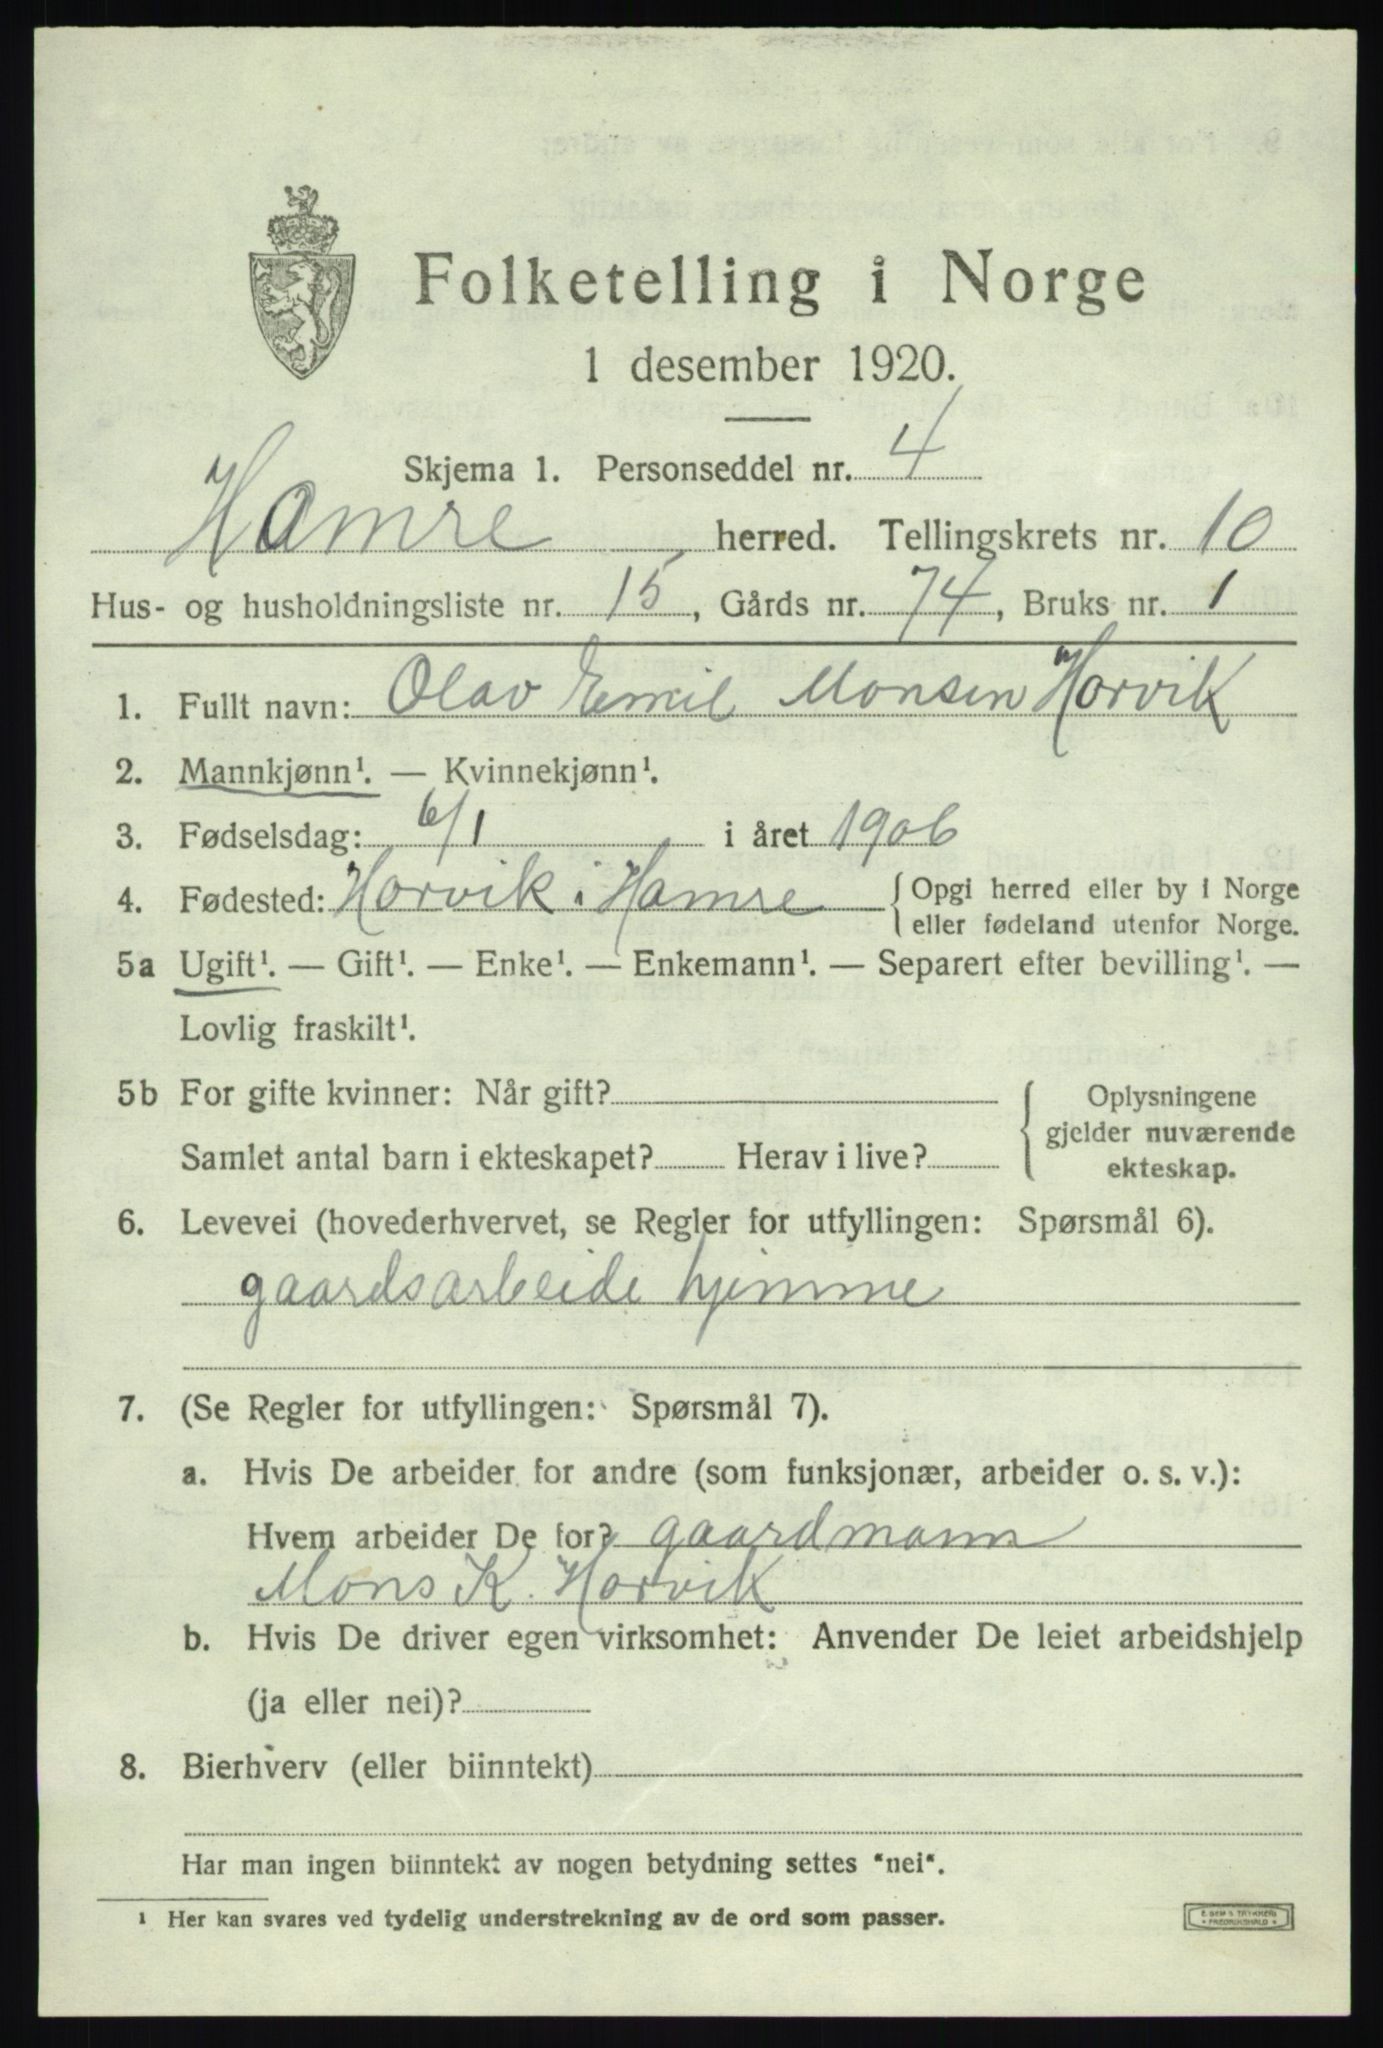 Folketelling i Norge
1 desember 1920.
Skjema 1. Personseddel nr. 4
Hamre herred. Tellingskrets nr. 10
Hus- og husholdningsliste nr. 15, Gårds nr. 74, Bruks nr. 1
1. Fullt navn: Olav Emil Monsen Horvik
2. Mannkjønn¹. — Kvinnekjønn¹.
3. Fødselsdag: 6/1 i året 1906
4. Fødested: Horvik i Hamre { Opgi herred eller by i Norge
eller fødeland utenfor Norge.
5a Ugift¹. — Gift¹. — Enke¹. — Enkemann¹. — Separert efter bevilling¹. —
Lovlig fraskilt¹.
5b For gifte kvinner: Når gift? { Oplysningene
gjelder nuværende
Samlet antal barn i ekteskapet? Herav i live? ekteskap.
6. Levevei (hovederhvervet, se Regler for utfyllingen: Spørsmål 6).
gaardsarbeide hjemme
7. (Se Regler for utfyllingen: Spørsmål 7).
a. Hvis De arbeider for andre (som funksjonær, arbeider o. s. v.):
Hvem arbeider De for? gaardmann
Mons K. Horvik
b. Hvis De driver egen virksomhet: Anvender De leiet arbeidshjelp
(ja eller nei)?
8. Bierhverv (eller biinntekt)
Har man ingen biinntekt av nogen betydning settes "nei".
¹ Her kan svares ved tydelig understrekning av de ord som passer.
E. SEM'S TRYKKERI
* FREDRIKSHALD *